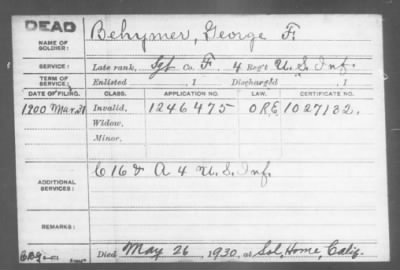 DEAD
NAME OF SOLDIER: Behymer, George F.
SERVICE: Late rank, Sgt Co. F, 4 Reg't U. S. Inf.
TERM OF SERVICE: Enlisted , 1 Discharged , 1
DATE OF FILING. CLASS. APPLICATION NO. LAW. CERTIFICATE NO.
1900 Mar. 21 Invalid, 1246475 O.R.E 1027132.
Widow,
Minor,
ADDITIONAL SERVICES: C 16 & A 4 U.S. Inf.
REMARKS:
Died May 26, 1930, at Sol. Home, Calif.